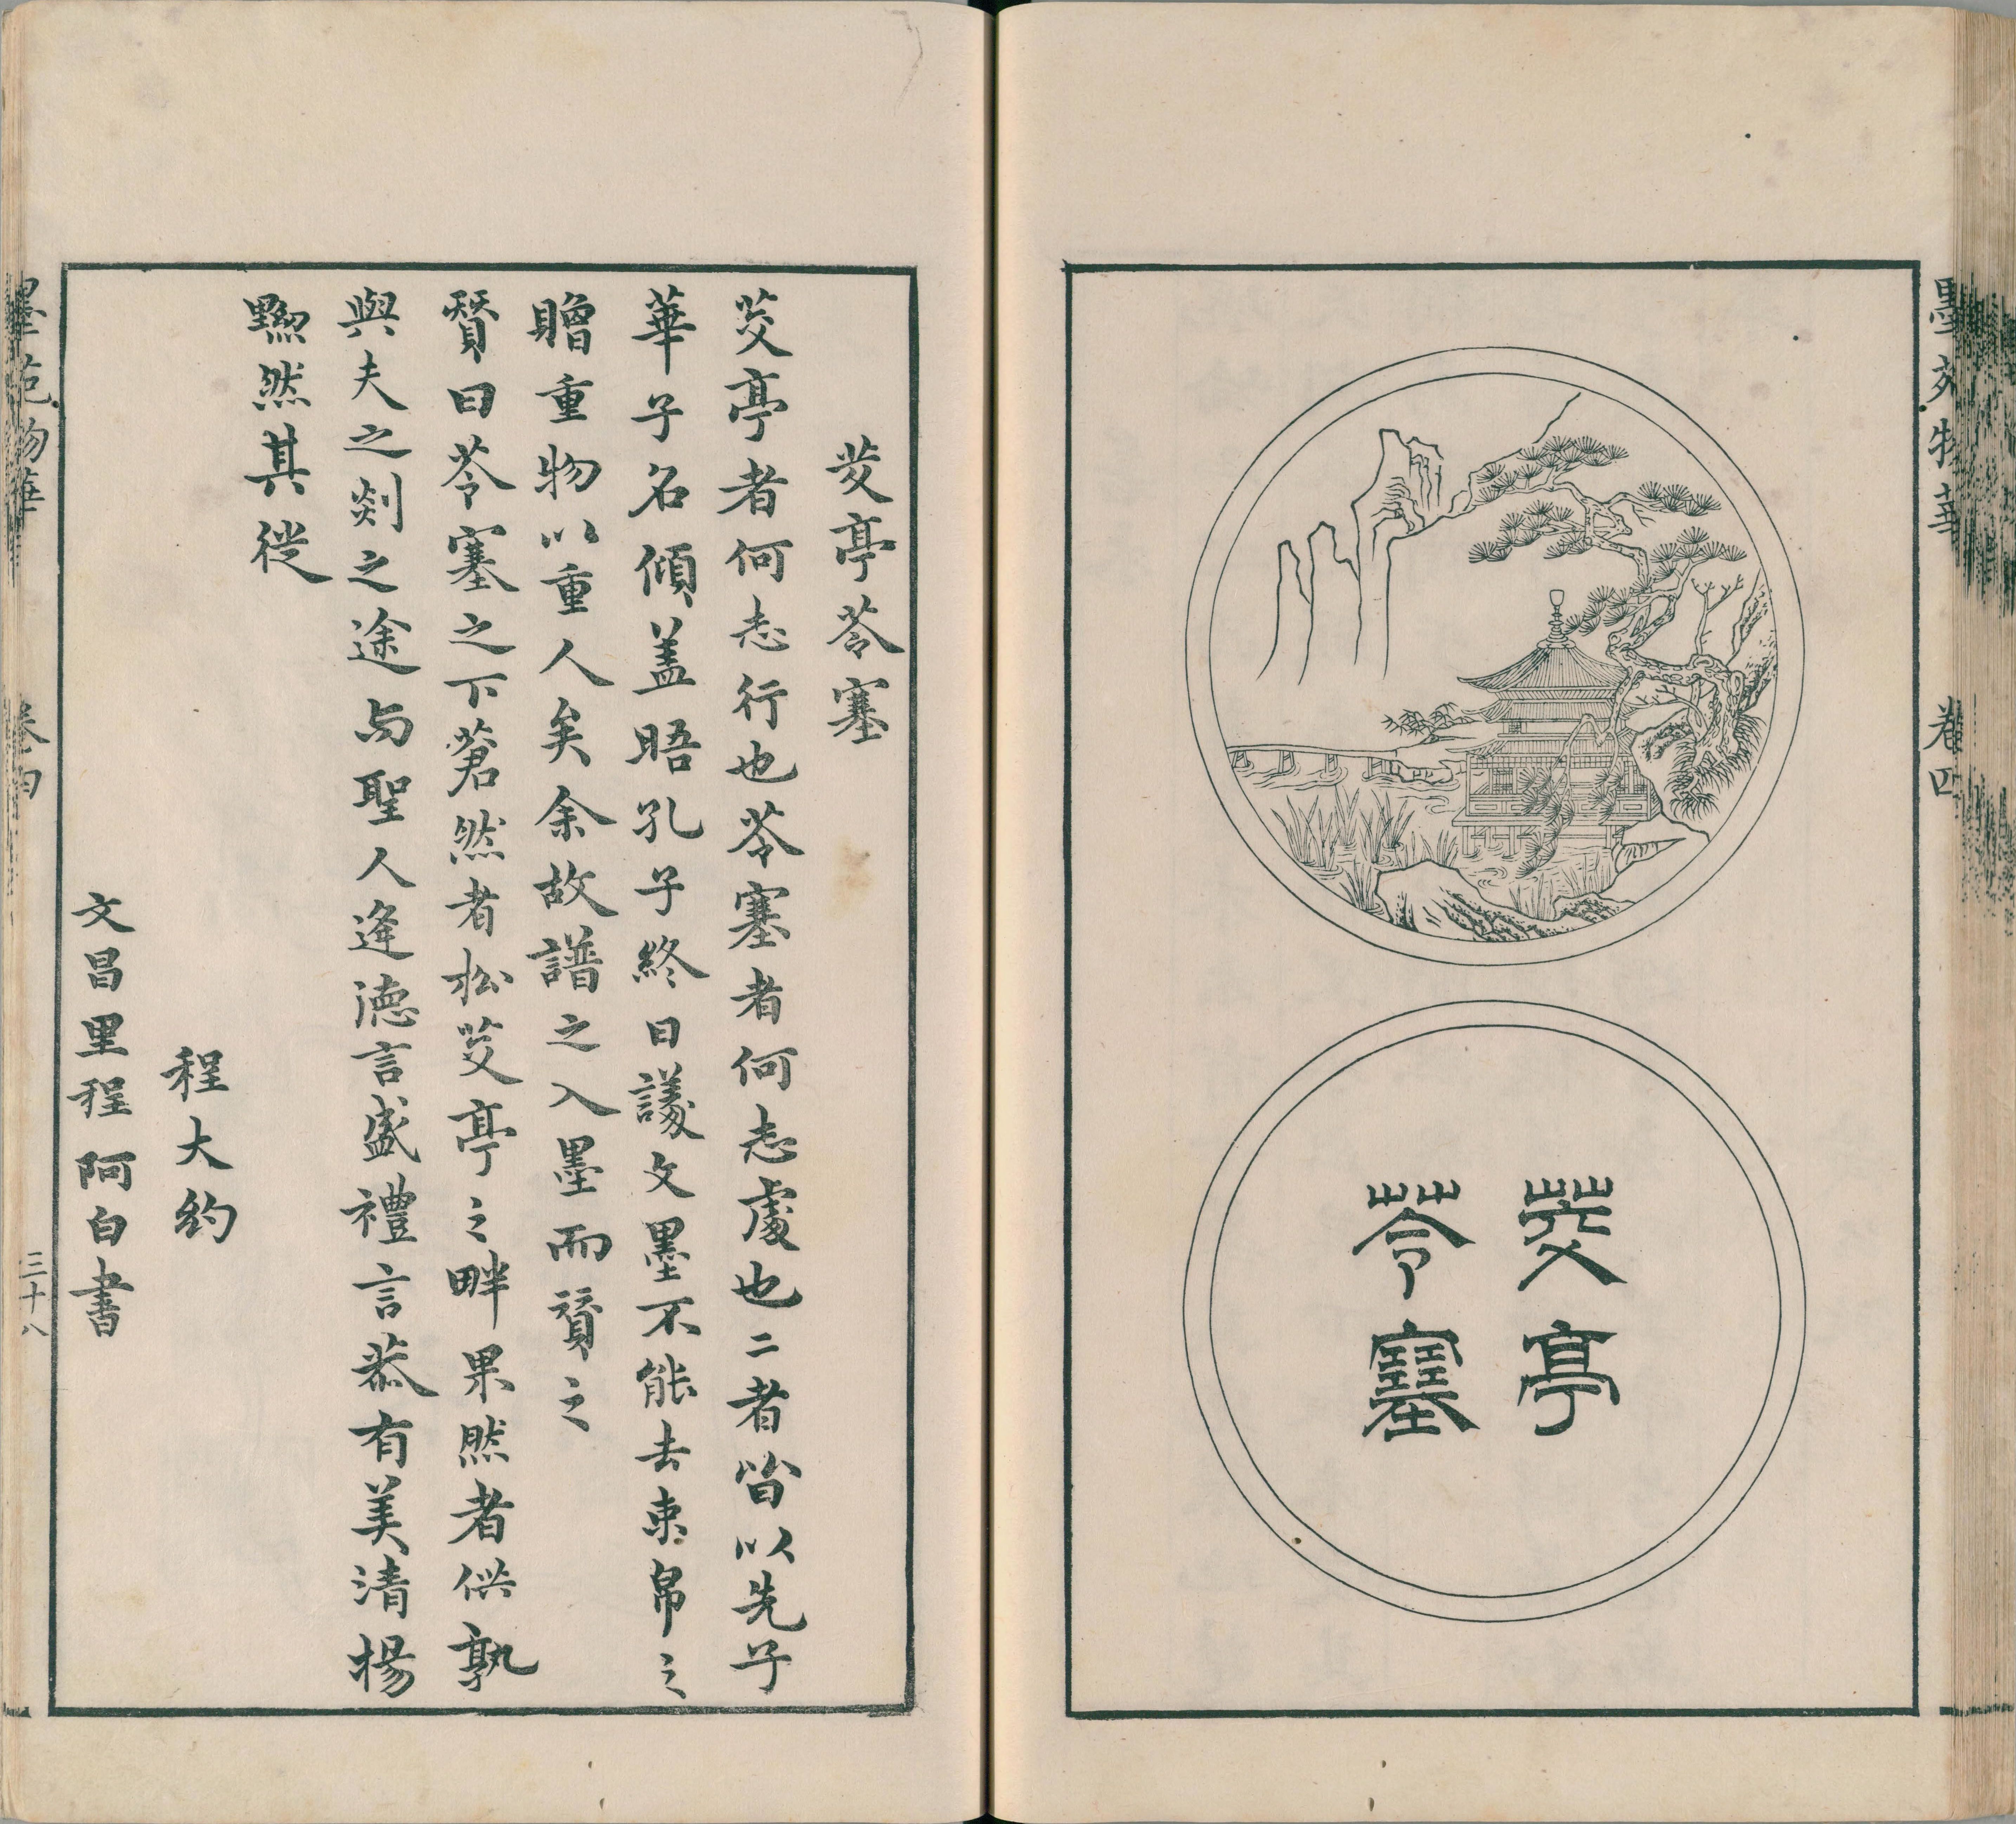 墨苑物華
卷四
芰亭
苓塞
芰亭苓塞
芰亭者何志行也苓塞者何志處也二者皆以先子
華子名傾盖晤孔子終日議文墨不能去束帛之
贈重物以重人矣余故譜之入墨而贊之
贊曰苓塞之下蒼然者松芰亭之畔果然者供孰
與夫之剡之途与聖人逢德言盛禮言恭有美清揚
黝然其從
程大約
文昌里程阿白書
墨苑物華
卷四
三十八